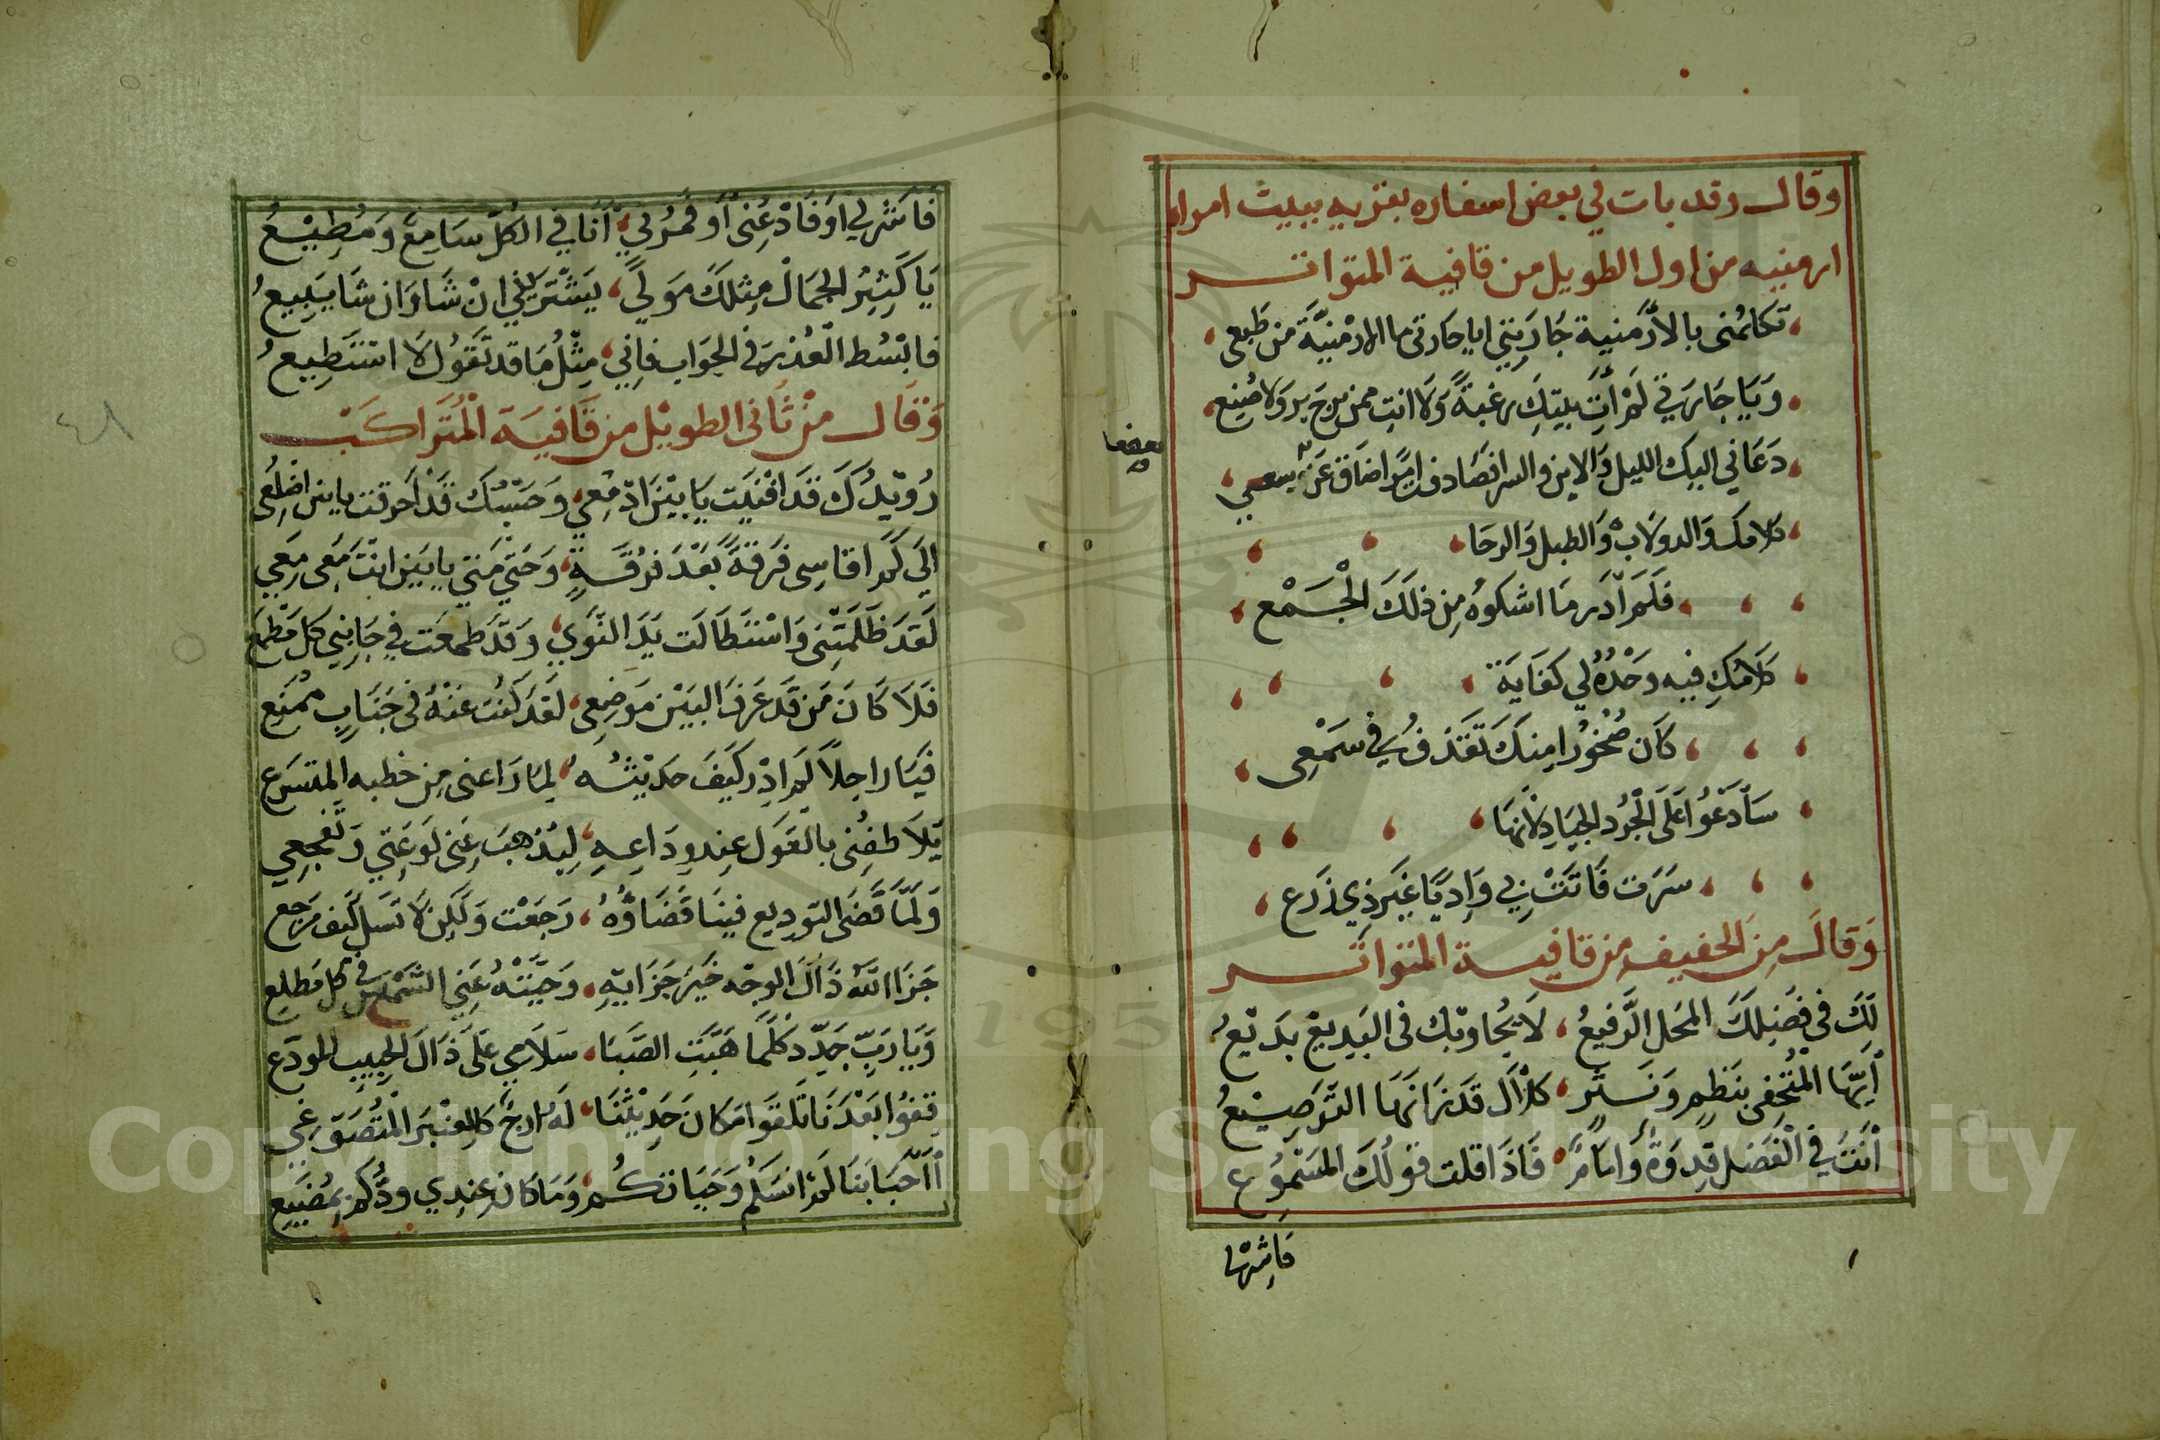 وقال وقد بات في بعض اسفاره بقريه ببيت امراه
ارمنيه من اول الطويل من قافية المتواتر
تكلمني بالأرمنية جَارَتِي ايا جارتي ما الارْمنِيَّة من طَبعي
وَيَا جَارتي لَمْ آتِ بيتِكِ رغبةً وَلَا انتِ ممن يرجى بر ولا صُنِع
دَعَاني اليك الليل وَالاين والسر فصادفت امرًا ضَاق عَن سعيي
كلامك وَالدولَاب وَالطبل وَالرحَا
فلَمَ أدر مَا اشكوهُ مِن ذلَكَ الجَمْع
كلَامُكِ فيه وَحْدُهُ لي كفَايَة
كَان صُخورًا مِنكَ تَقذف في سَمْعِي
سَأدعُوا عَلَى الجُرد الجيَادِ لأنها
سَرَت فَاتَتْ بِي وَادِيًا غَيرَ ذِي زَرع
وَقالَ مِنَ الخفيف من قافية المتواتر
لَكَ في فَضلِكَ المحَل الرَّفيعُ، لَا يُجاوبك في البَدِيع بَديعُ
أيُّهَا المُتْحِفى بنَظمٍ وَنَثَر، كلاَل قَد زَانَهَا التَرصِيعُ
أنتَ في الفَضل قِدوَةٌ وَامَامٌ، فَاذَا قلت قولُكَ المَسْمُوع
فَاشِرْ لي
بعضها
فَاشر لي اوَفَادْعُنِي أَو فَمُرْني، أنَا في الكُلّ سَامعٌ وَمُطِيعُ
يَا كَثيرُ الجَمَال مِثلكَ مَولًى، يَشْتَريني انْ شَا وَان شَا يَبِيعُ
فابْسُط العُذرَ في الجوَاب فاِني، مِثْلُ مَا قد تَقُولُ لَا اسْتَطِيعُ
وَقال من ثَانى الطويل من قَافيَة المُترَاكب
رُوَيْدُكَ قَد افنيَت يَا بَيْن ادْمُعِي، وَحَسْبُكَ قَد أحرقت يا بين اضلعي
الَى كَم اقاسِي فرقَةً بَعْدَ فرُقَةٍ، وَحَتى مَتى يا بَين انتَ مَعِي مَعِي
لَقَدَ ظَلَمَتْني وَاسْتَطَالَت يَدَ النَّوَي، وَقَد طَمعَت في جَانِبي كل مَطْمَع
فَلَا كَانَ مَن قَد عَرفَ البَيْن مَوضِعِي، لَقَد كُنت عَنْهُ في جَنَابٍ مُمَنَّع
فيَا راحِلاً لَم ادْر كَيفَ حَديْثُهُ، لمَا رَاعنى مِن خطبه المتسَرع
يُلاَطِفُني بالقَول عِندَ وِدَاعِهِ، لِيُذهبَ عَني لَوعَتي وَتَفَجعي
وَلَمّا قَضَى التوديع فينَا قَضَاؤُهُ، رَجَعْت وَلكِن لَا تَسَل كَيف مَرجع
جَزَا اللَّه ذَاكَ الوجْه خَيَر جَزَايهِ، وَحَيَّتْهُ عَني الشَّمس في كل مَطلِع
وَيَا رَبِّ جَدِّد كلَّمَا هَبَّتِ الصَبَا، سَلاَمي عَلَى ذَاكَ الحبِيب المودَع
قفوا بَعْدَنَا تَلقَوا مَكانَ حَديْثنَا، لَه ارجٌ كَالعَنْبَر المُتُضَوِّعي
أاَحْبَابَنَا لَم انسَكُم وَحَيَاتكُم، وَمَا كان عِندِي وُدُّكم بِمُضَيَّع
٤٨